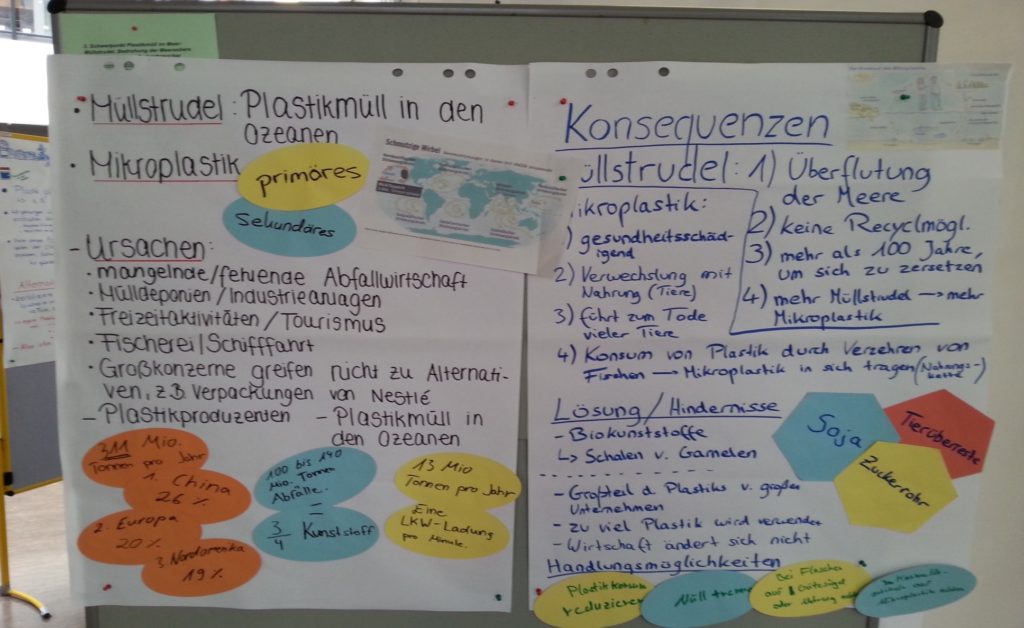 3. Schwerpunkt Plastikmüll im Meer:
Müllstrudel, Bedrohung der Meerestiere
• Müllstrudel: Plastikmüll in den
Ozeanen
• Mikroplastik
primäres
sekundäres
Schmutzige Wirbel
– Ursachen:
• mangelnde/fehlende Abfallwirtschaft
• Mülldeponien/Industrieanlagen
• Freizeitaktivitäten/Tourismus
• Fischerei/Schifffahrt
• Großkonzerne greifen nicht zu Alternati-
ven, z.B. Verpackungen von Nestlé
– Plastikproduzenten
311 Mio.
Tonnen pro Jahr
1. China
26 %
2. Europa
20 %
3. Nordamerika
19 %
– Plastikmüll in
den Ozeanen
100 bis 140
Mio. Tonnen
Abfälle.
=
3/4 Kunststoff
13 Mio
Tonnen pro Jahr
Eine
LKW-Ladung
pro Minute.
Konsequenzen
üllstrudel: 1) Überflutung
der Meere
2) keine Recyclmögl.
3) mehr als 100 Jahre,
um sich zu zersetzen
4) mehr Müllstrudel → mehr
Mikroplastik
ikroplastik:
) gesundheitsschäd-
igend
2) Verwechslung mit
Nahrung (Tiere)
3) führt zum Tode
vieler Tiere
4) Konsum von Plastik durch Verzehren von
Fischen → Mikroplastik in sich tragen (Nahrungs-
kette)
Lösung/Hindernisse
– Biokunststoffe
↳ Schalen v. Garnelen
Soja
Tierüberreste
Zuckerrohr
– Großteil d. Plastiks v. großen
Unternehmen
– zu viel Plastik wird verwendet
– Wirtschaft ändert sich nicht
Handlungsmöglichkeiten
Plastikkonsum
reduzieren
Müll trennen
Bei Flaschen
auf Gütesiegel
oder
Mikroplastik